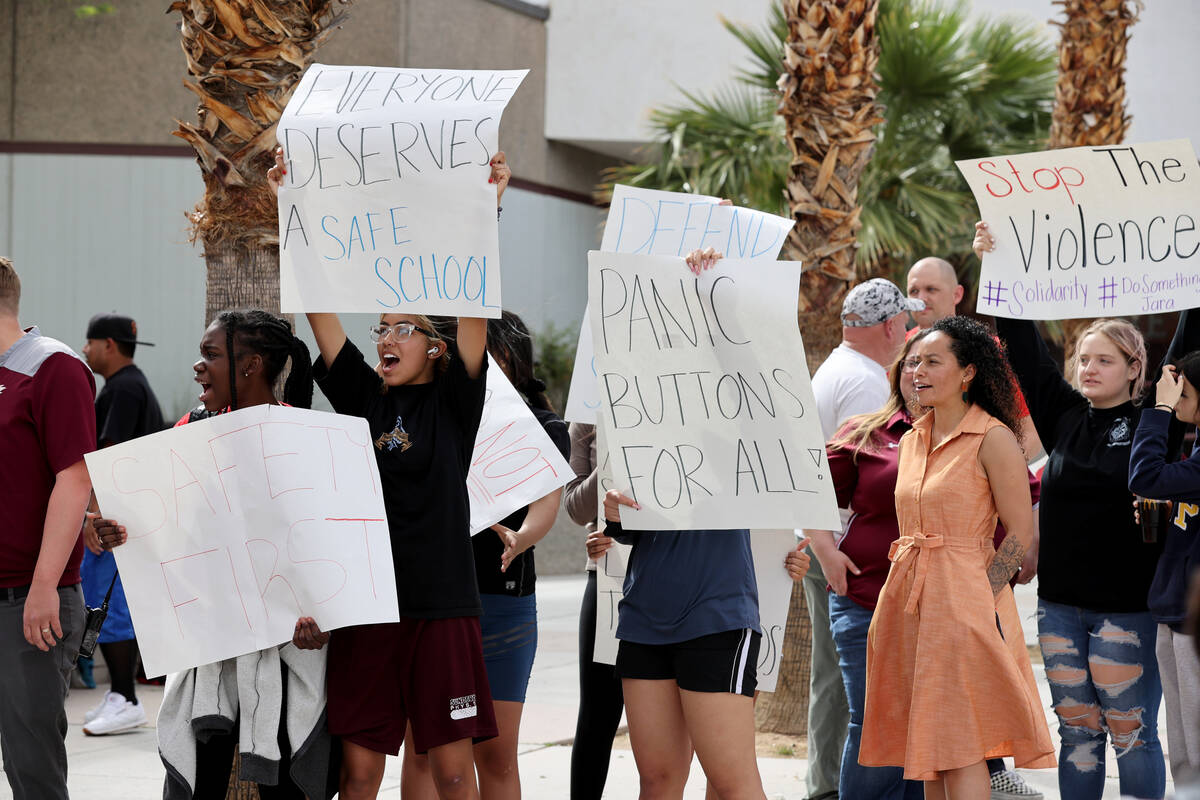 EVERYONE
DESERVES
A SAFE
SCHOOL
SAFETY
FIRST
NOT
DEFEND
PANIC
BUTTONS
FOR ALL!
Stop The
Violence
#Solidarity #DoSomething
Jara
SUNDEVIL